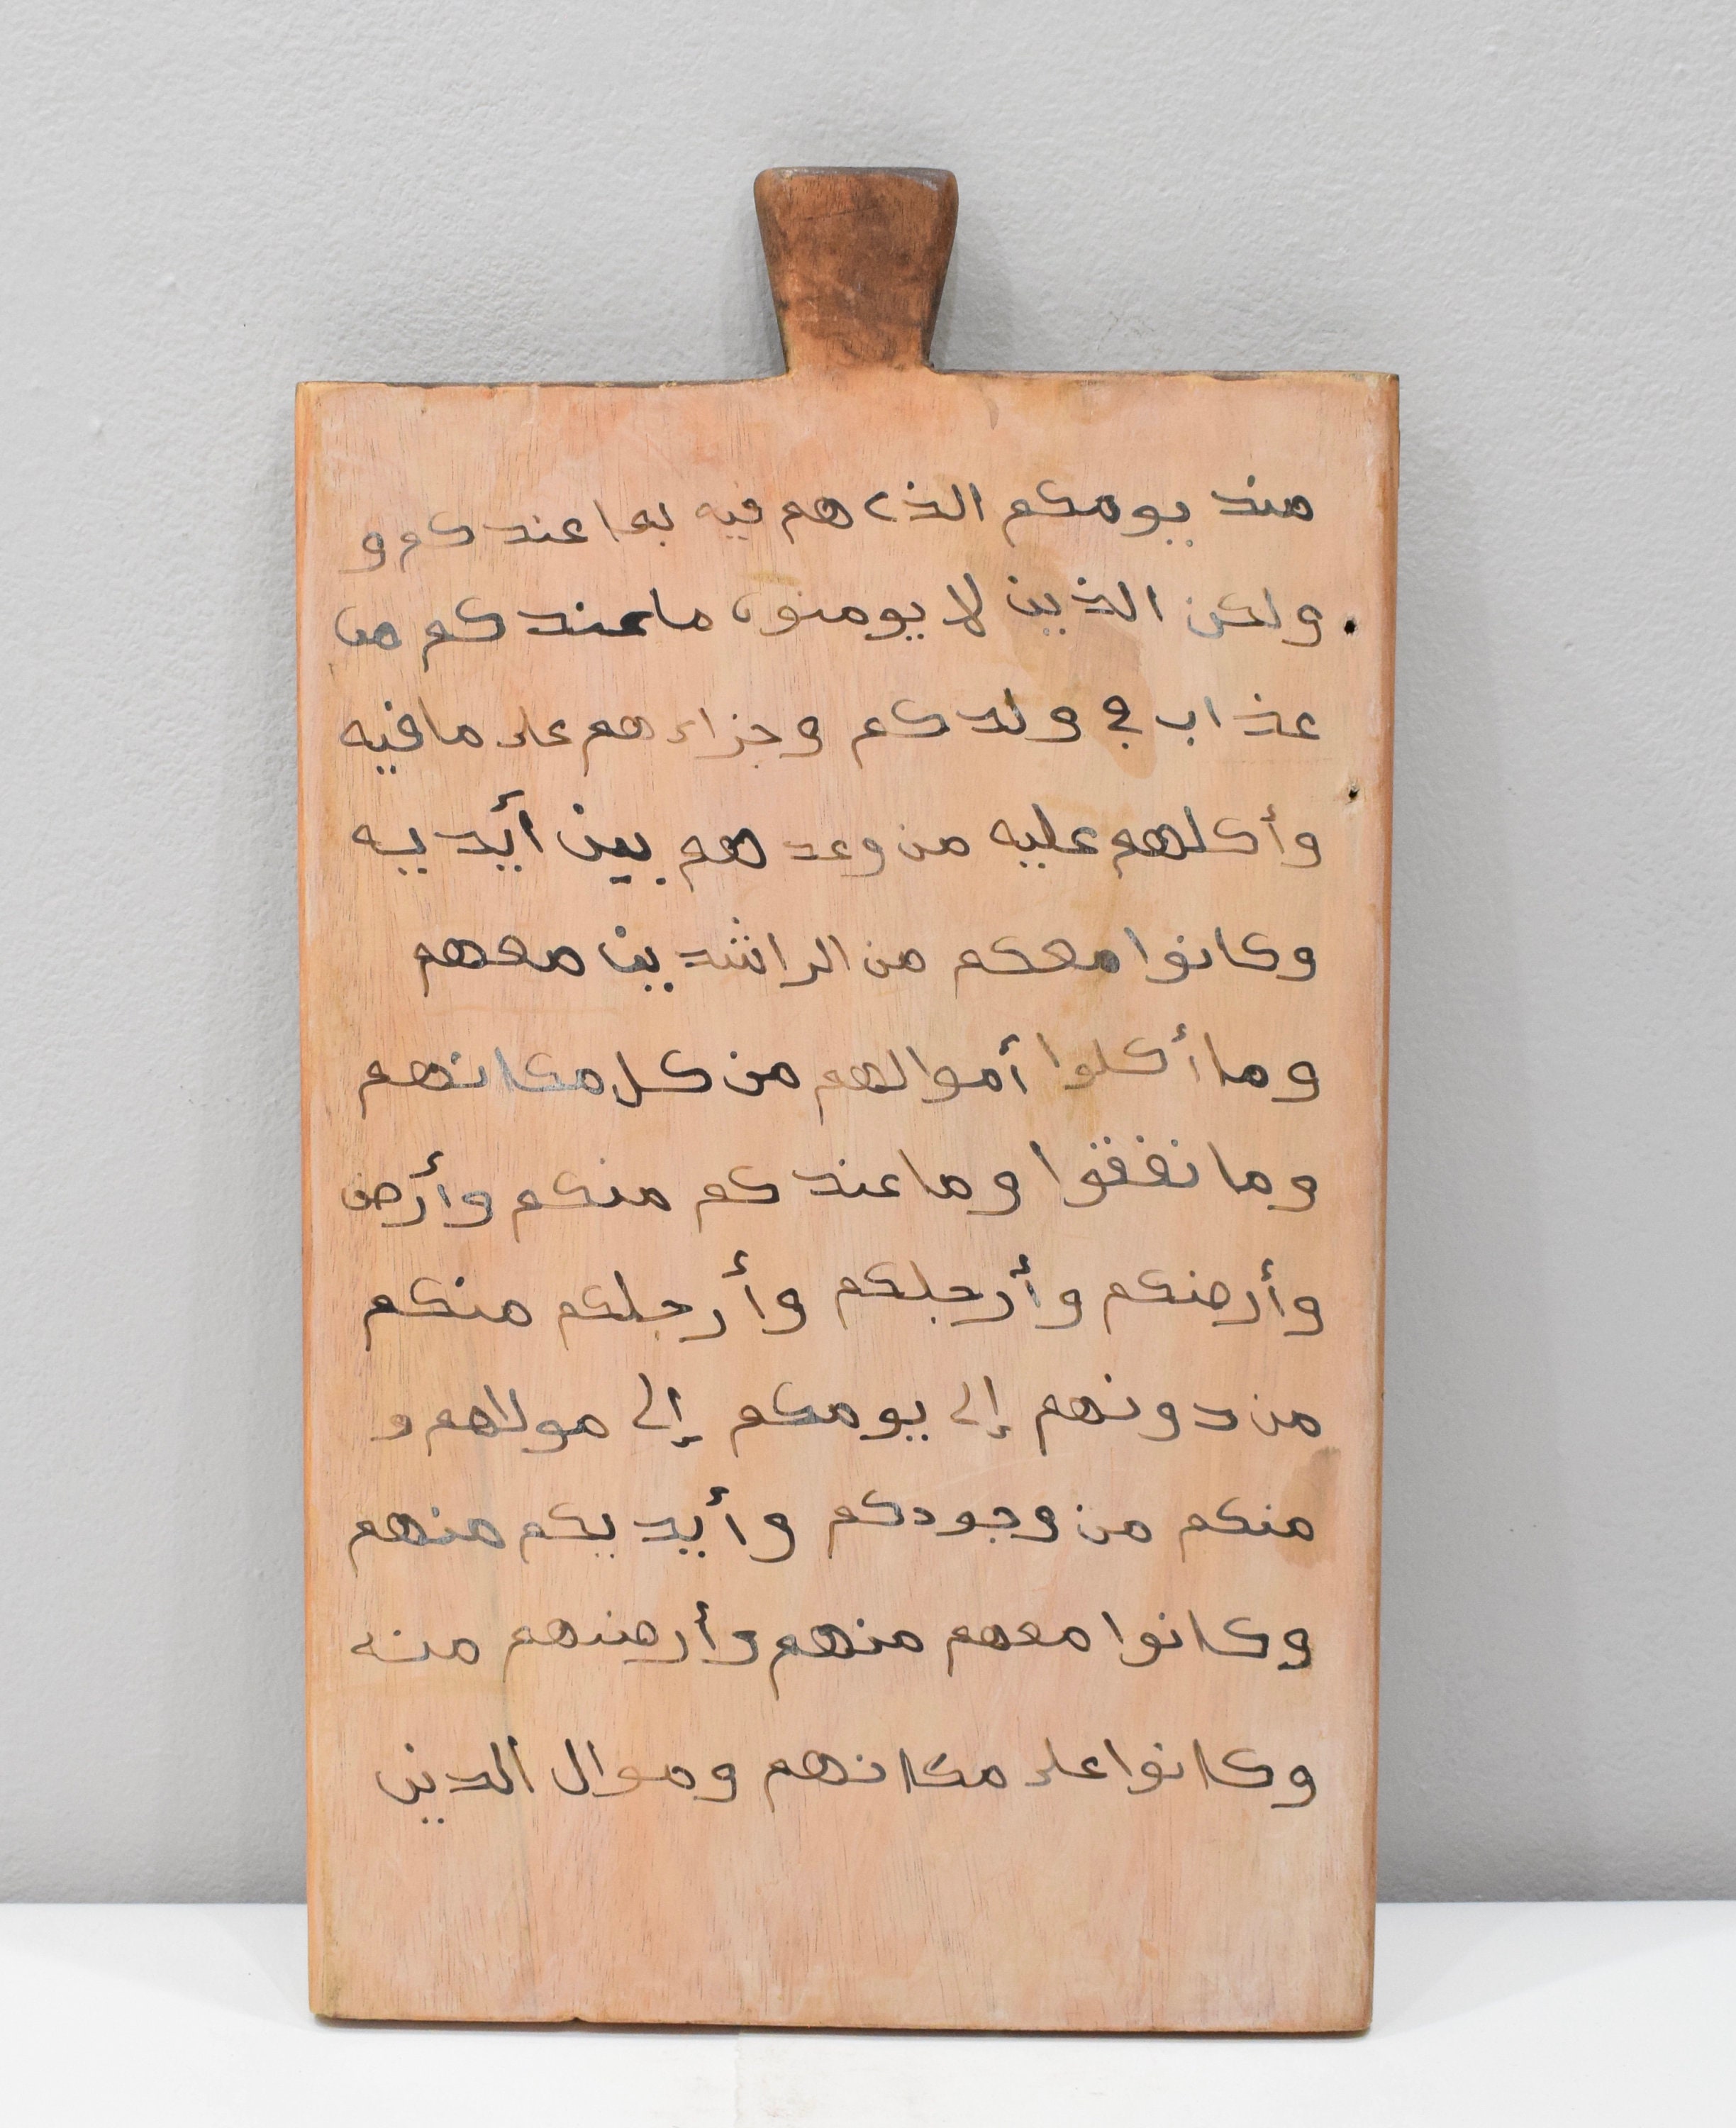 منذ يومكم الذي هم فيه بما عندكم و
ولكن الذين لا يومنون ما عندكم من
عذاب في ولدكم وجزاءهم على ما فيه
وأكلهم عليه من وعدهم بين أيديه
وكانوا معكم من الراشدين معهم
وما أكلوا أموالهم من كل مكانهم
وما نفقوا وما عندكم منكم وأرض
وأرضكم وأرجلكم وأرجلكم منكم
من دونهم إلى يومكم إلى مولاهم و
منكم من وجودكم وأيديكم منهم
وكانوا معهم منهم وأرضهم منه
وكانوا على مكانهم وموال الدين